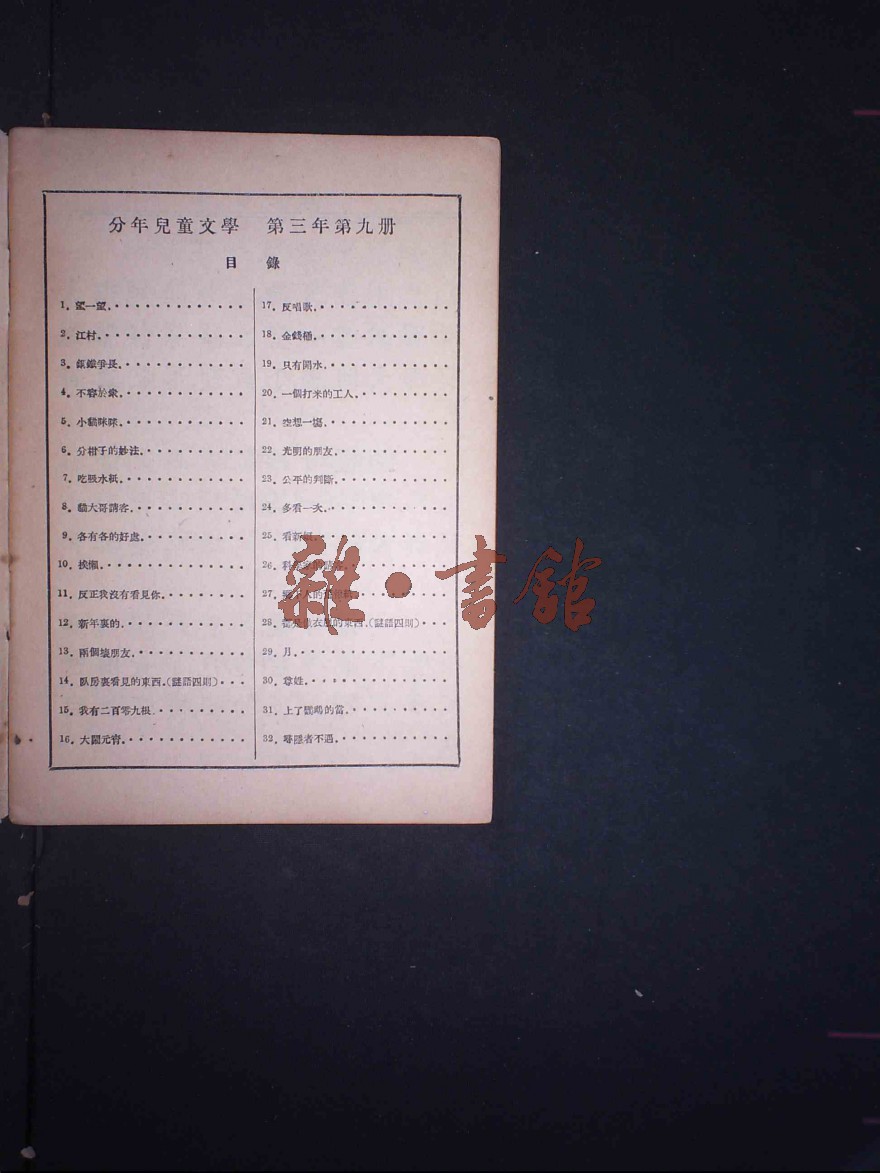 分年兒童文學 第三年第九册
目 錄
1. 望一望.
2. 江村.
3. 銀鐵爭長.
4. 不容於衆.
5. 小貓咪咪.
6. 分柑子的妙法.
7. 吃吸水紙.
8. 貓大哥請客.
9. 各有各的好處.
10. 挨懶.
11. 反正我沒有看見你.
12. 新年裏的.
13. 兩個壞朋友.
14. 臥房裏看見的東西.(謎語四則)
15. 我有二百零九根.
16. 大鬧元宵.
17. 反唱歌.
18. 金錢桶.
19. 只有開水.
20. 一個打米的工人.
21. 空想一場.
22. 光明的朋友.
23. 公平的判斷.
24. 多看一次.
25. 看新
26. 科
27. 人的
28. 衣 的東西.(謎語四則)
29. 月.
30. 尊姓.
31. 上了 的當.
32. 尋隱者不遇.
雜·書館